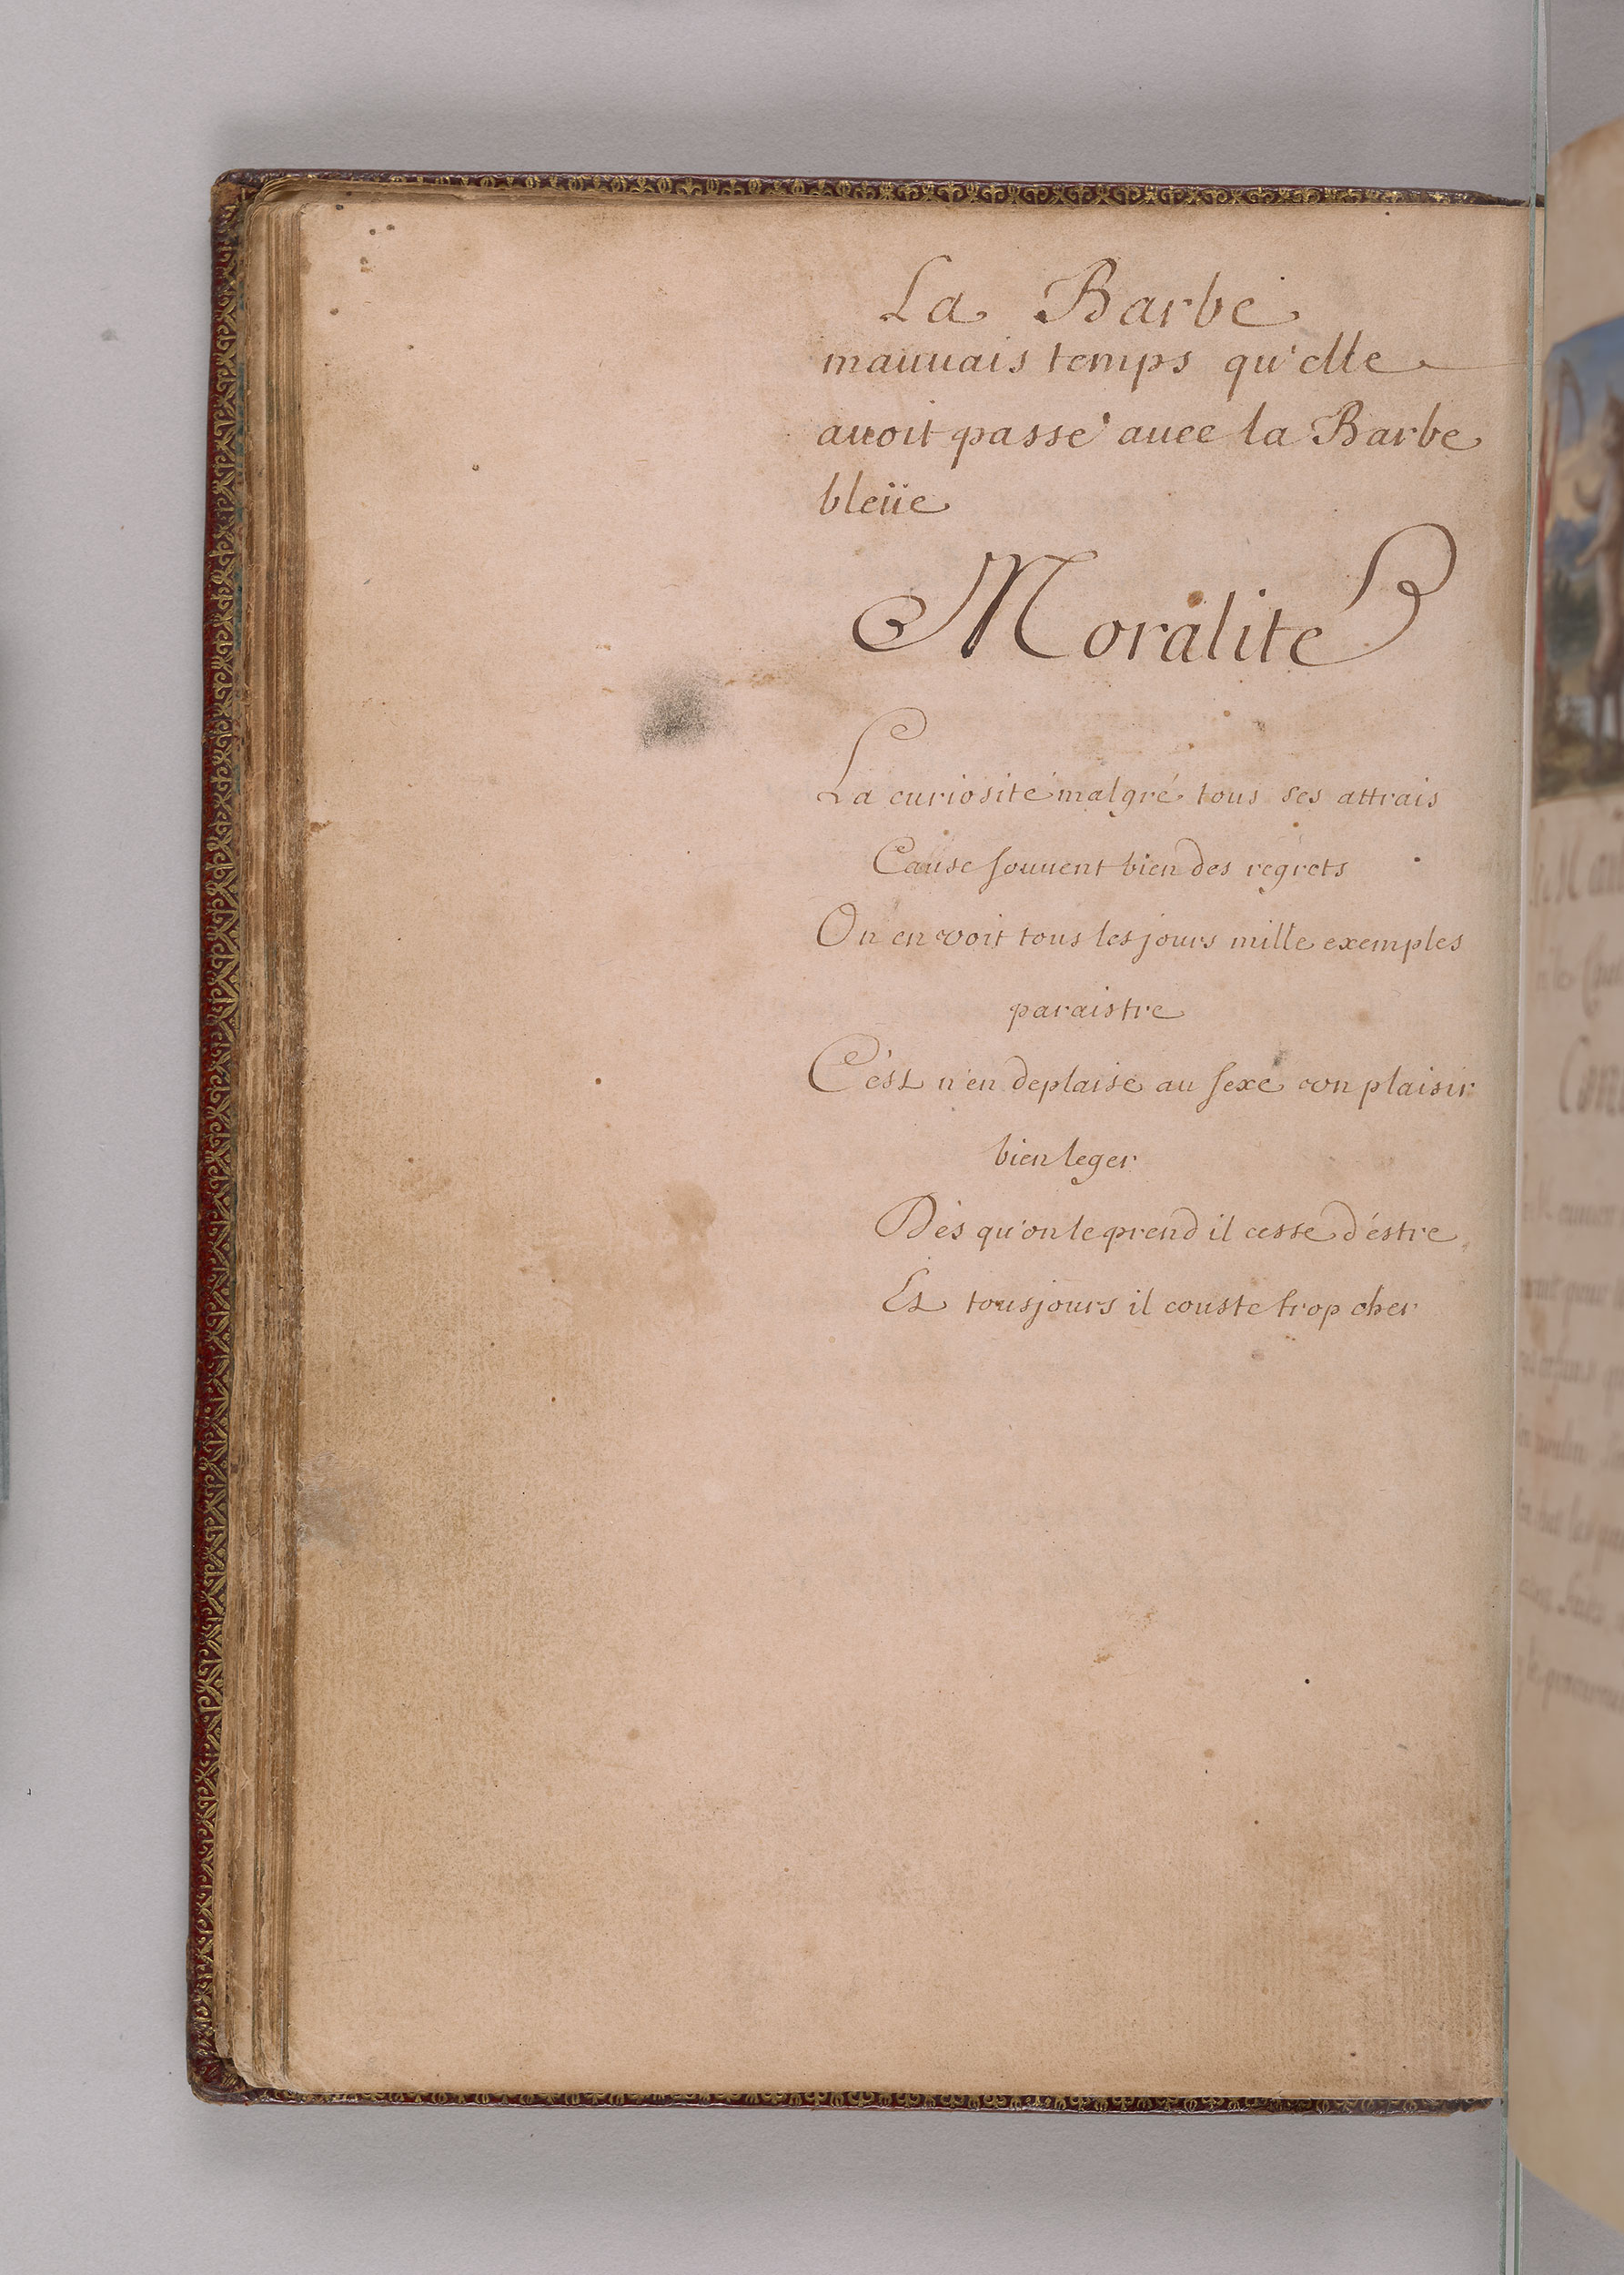 La Barbe
mauuais temps qu'elle
auoit passé auec la Barbe
bleüe
Moralité
La curiosité malgré tous ses attrais
Cause souuent bien des regrets
On en voit tous les jours mille exemples
paraistre
C'est n'en deplaise au sexe vn plaisir
bien leger
Dés qu'on le prend il cesse d'éstre
Et tousjours il couste trop cher